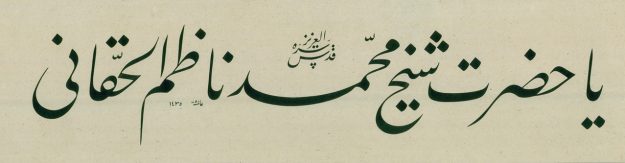 يا حضرت شيخ محمد ناظم الحقاني
قدس سره العزيز
١٤٣٥